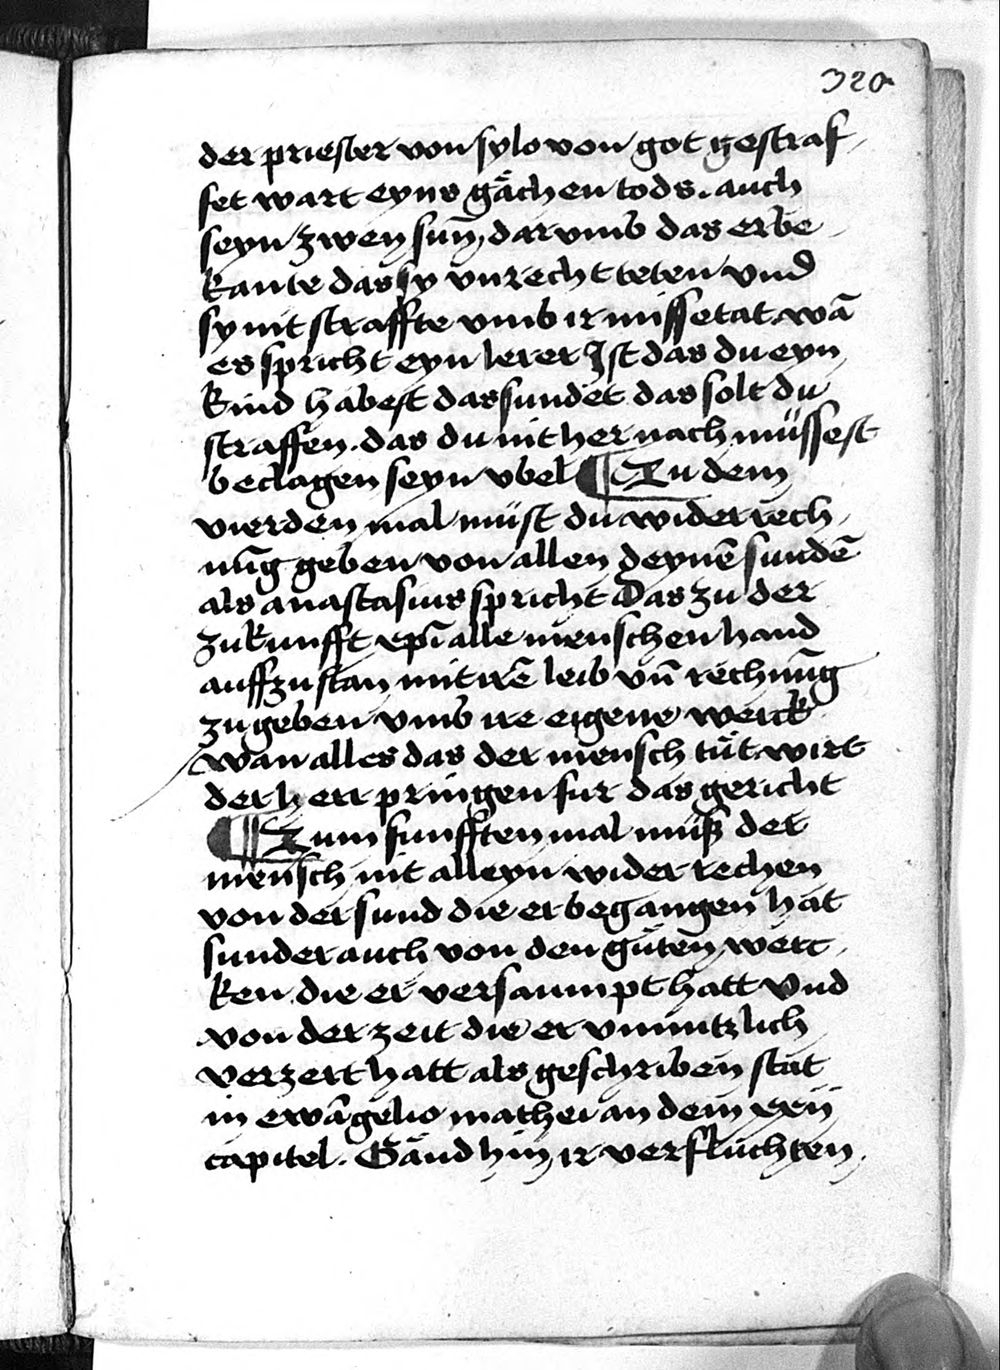 320
der priester von sylo von got gestraf-
fet wart eyns gächen tods. auch
seyn zwen sun, dar vmb das er be-
kante das sy vnrecht teten vnd
sy nit straffte vmb ir missetat. wā
es spricht eyn lerer Ist das du eyn
kind habest das sundet das solt du
straffen. das du nit her nach müssest
beclagen seyn vbel ¶ Zu dem
vierden mal müst du wider rech-
nūg geben von allen deynē sundē
als anastasius spricht Das zu der
zukunfft xp̄i alle menschen hand
auff zu stan mit irē leib vn̄ rechnūg
zu geben vmb ire eigene werck
wan alles das der mensch tüt wirt
der herr pringen fur das gericht
¶ Zum funfften mal müß der
mensch nit alleyn wider rechen
von der sund die er begangen hat
sunder auch von den güten werc-
ken die er versaumpt hatt vnd
von der zeit die er vnnutzlich
verzert hatt als geschriben stät
in ewāgelio mathei an dem xxv
capitel. Gänd hin ir verflüchten